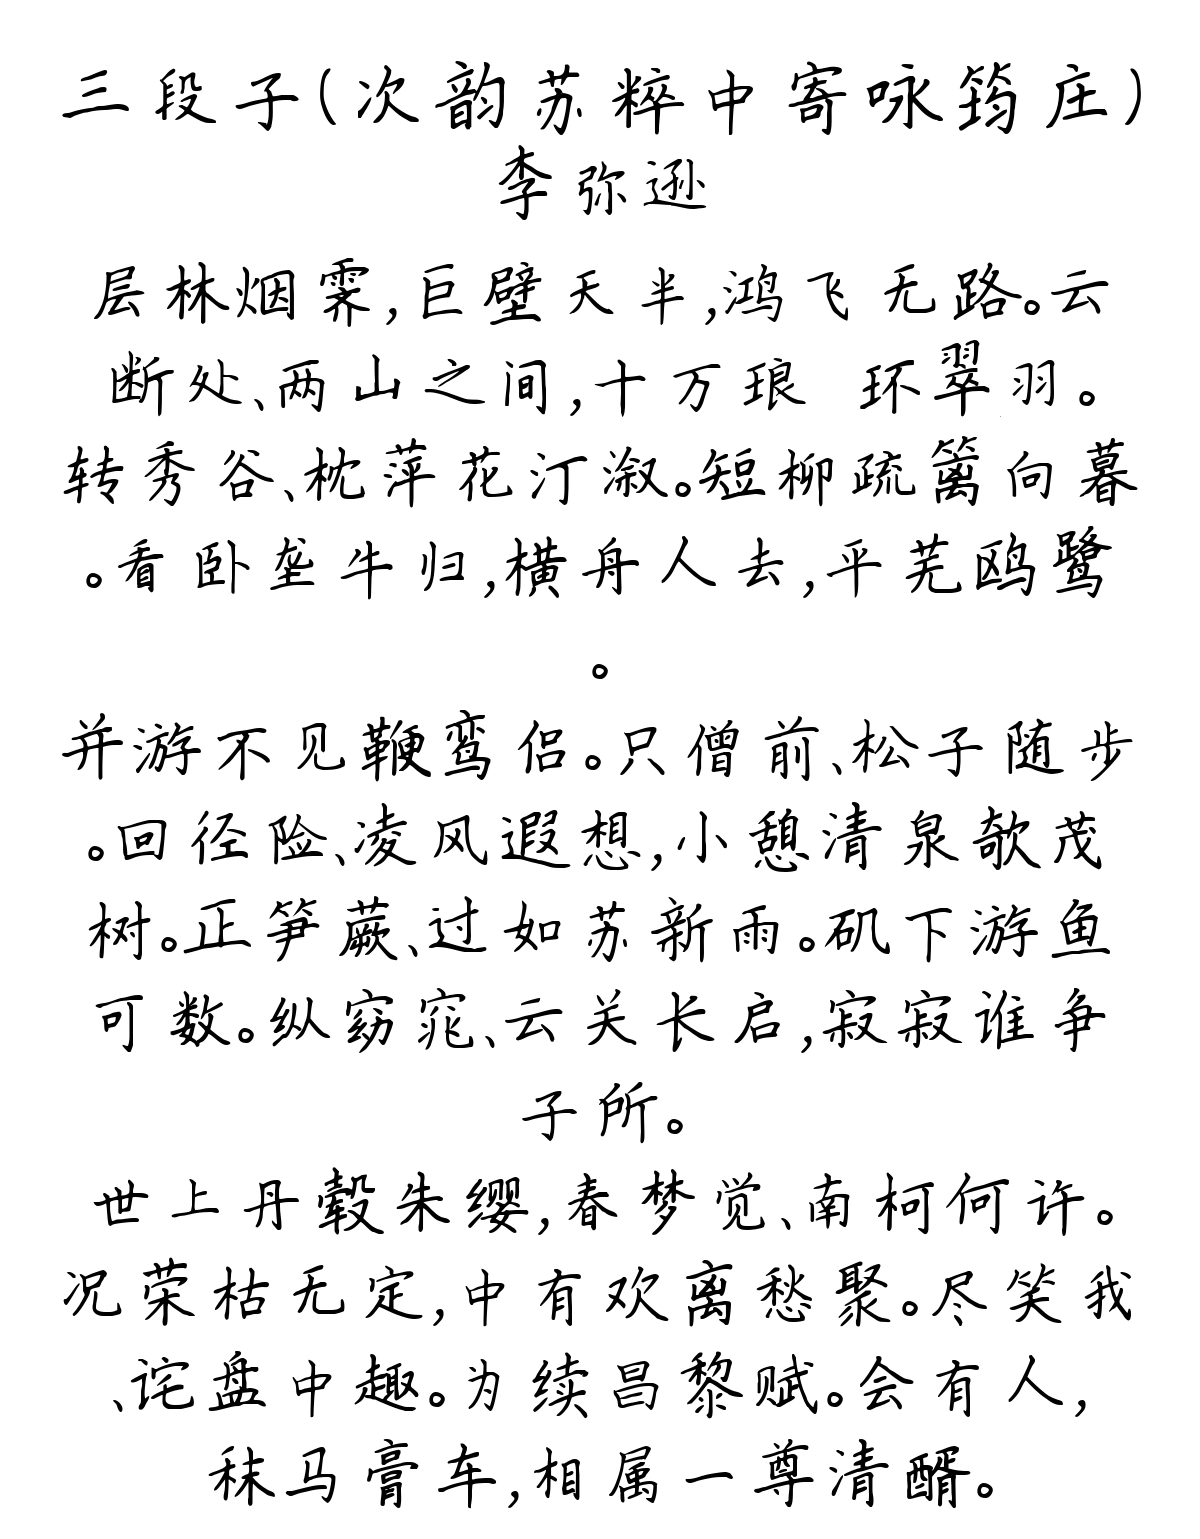 三段子(次韵苏粹中寄咏筠庄)
李弥逊
层林烟霁,巨壁天半,鸿飞无路。云
断处、两山之间,十万琅 环翠羽。
转秀谷、枕萍花汀溆。短柳疏篱向暮
。看卧垄牛归,横舟人去,平芜鸥鹭
。
并游不见鞭鸾侣。只僧前、松子随步
。回径险、凌风遐想,小憩清泉欹茂
树。正笋蕨、过如苏新雨。矶下游鱼
可数。纵窈窕、云关长启,寂寂谁争
子所。
世上丹毂朱缨,春梦觉、南柯何许。
况荣枯无定,中有欢离愁聚。尽笑我
、诧盘中趣。为续昌黎赋。会有人,
秣马膏车,相属一尊清醑。